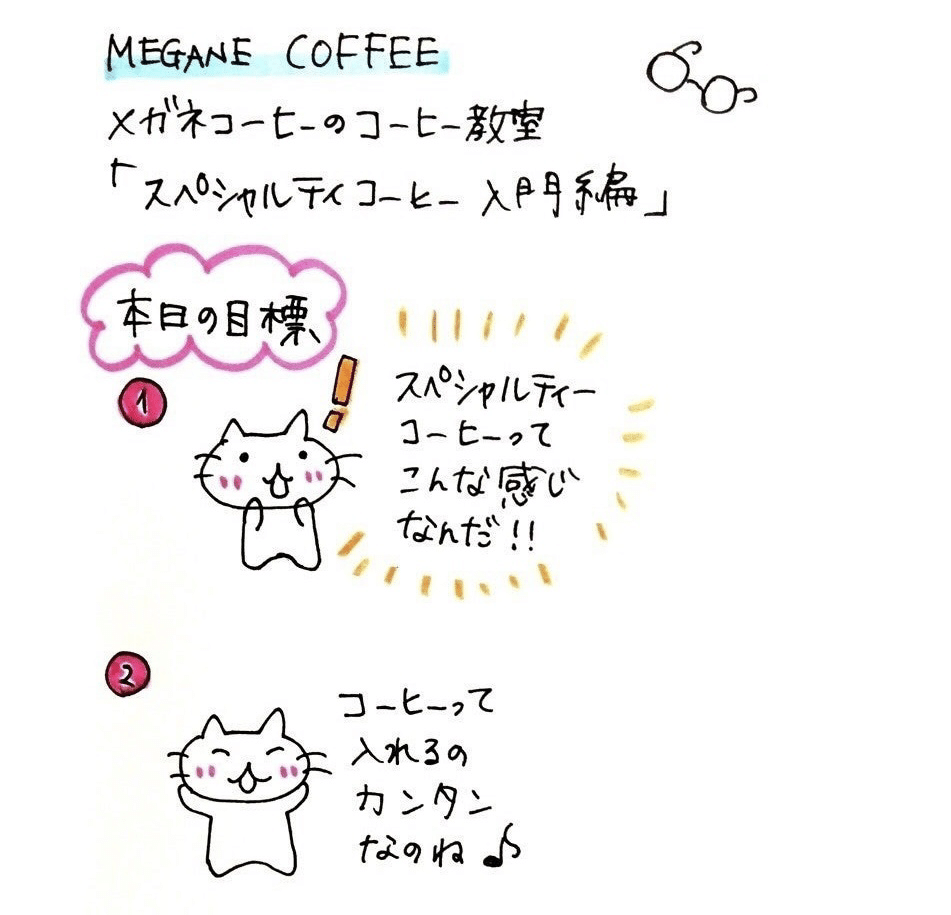 MEGANE COFFEE
メガネコーヒーのコーヒー教室
「スペシャルティコーヒー入門編」
本日の目標
1
スペシャルティー
コーヒーって
こんな感じ
なんだ!!
2
コーヒーって
入れるの
カンタン
なのね♪